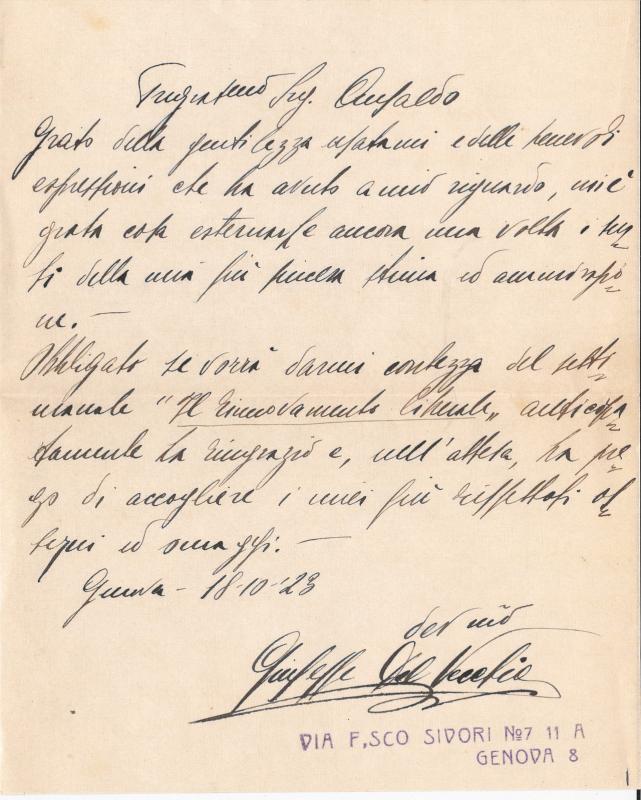 Pregiatmo Sig. Ansaldo
Grato della gentilezza usatami e delle
espressioni che ha avuto a mio riguardo, mi è
grata cosa esternarle ancora una volta i sen-
si della mia più sincera stima ed ammirazio-
ne. —
Obbligato se vorrà darmi contezza del setti-
manale "Il Rinnovamento liberale„ anticipa-
tamente La ringrazio e, nell'attesa, La pre-
go di accogliere i miei più rispettosi os-
sequi ed omaggi. —
Genova - 18-10-'23
dev mo
Giuseppe Del Vecchio
VIA F,SCO SIVORI Nº7 11 A
GENOVA 8